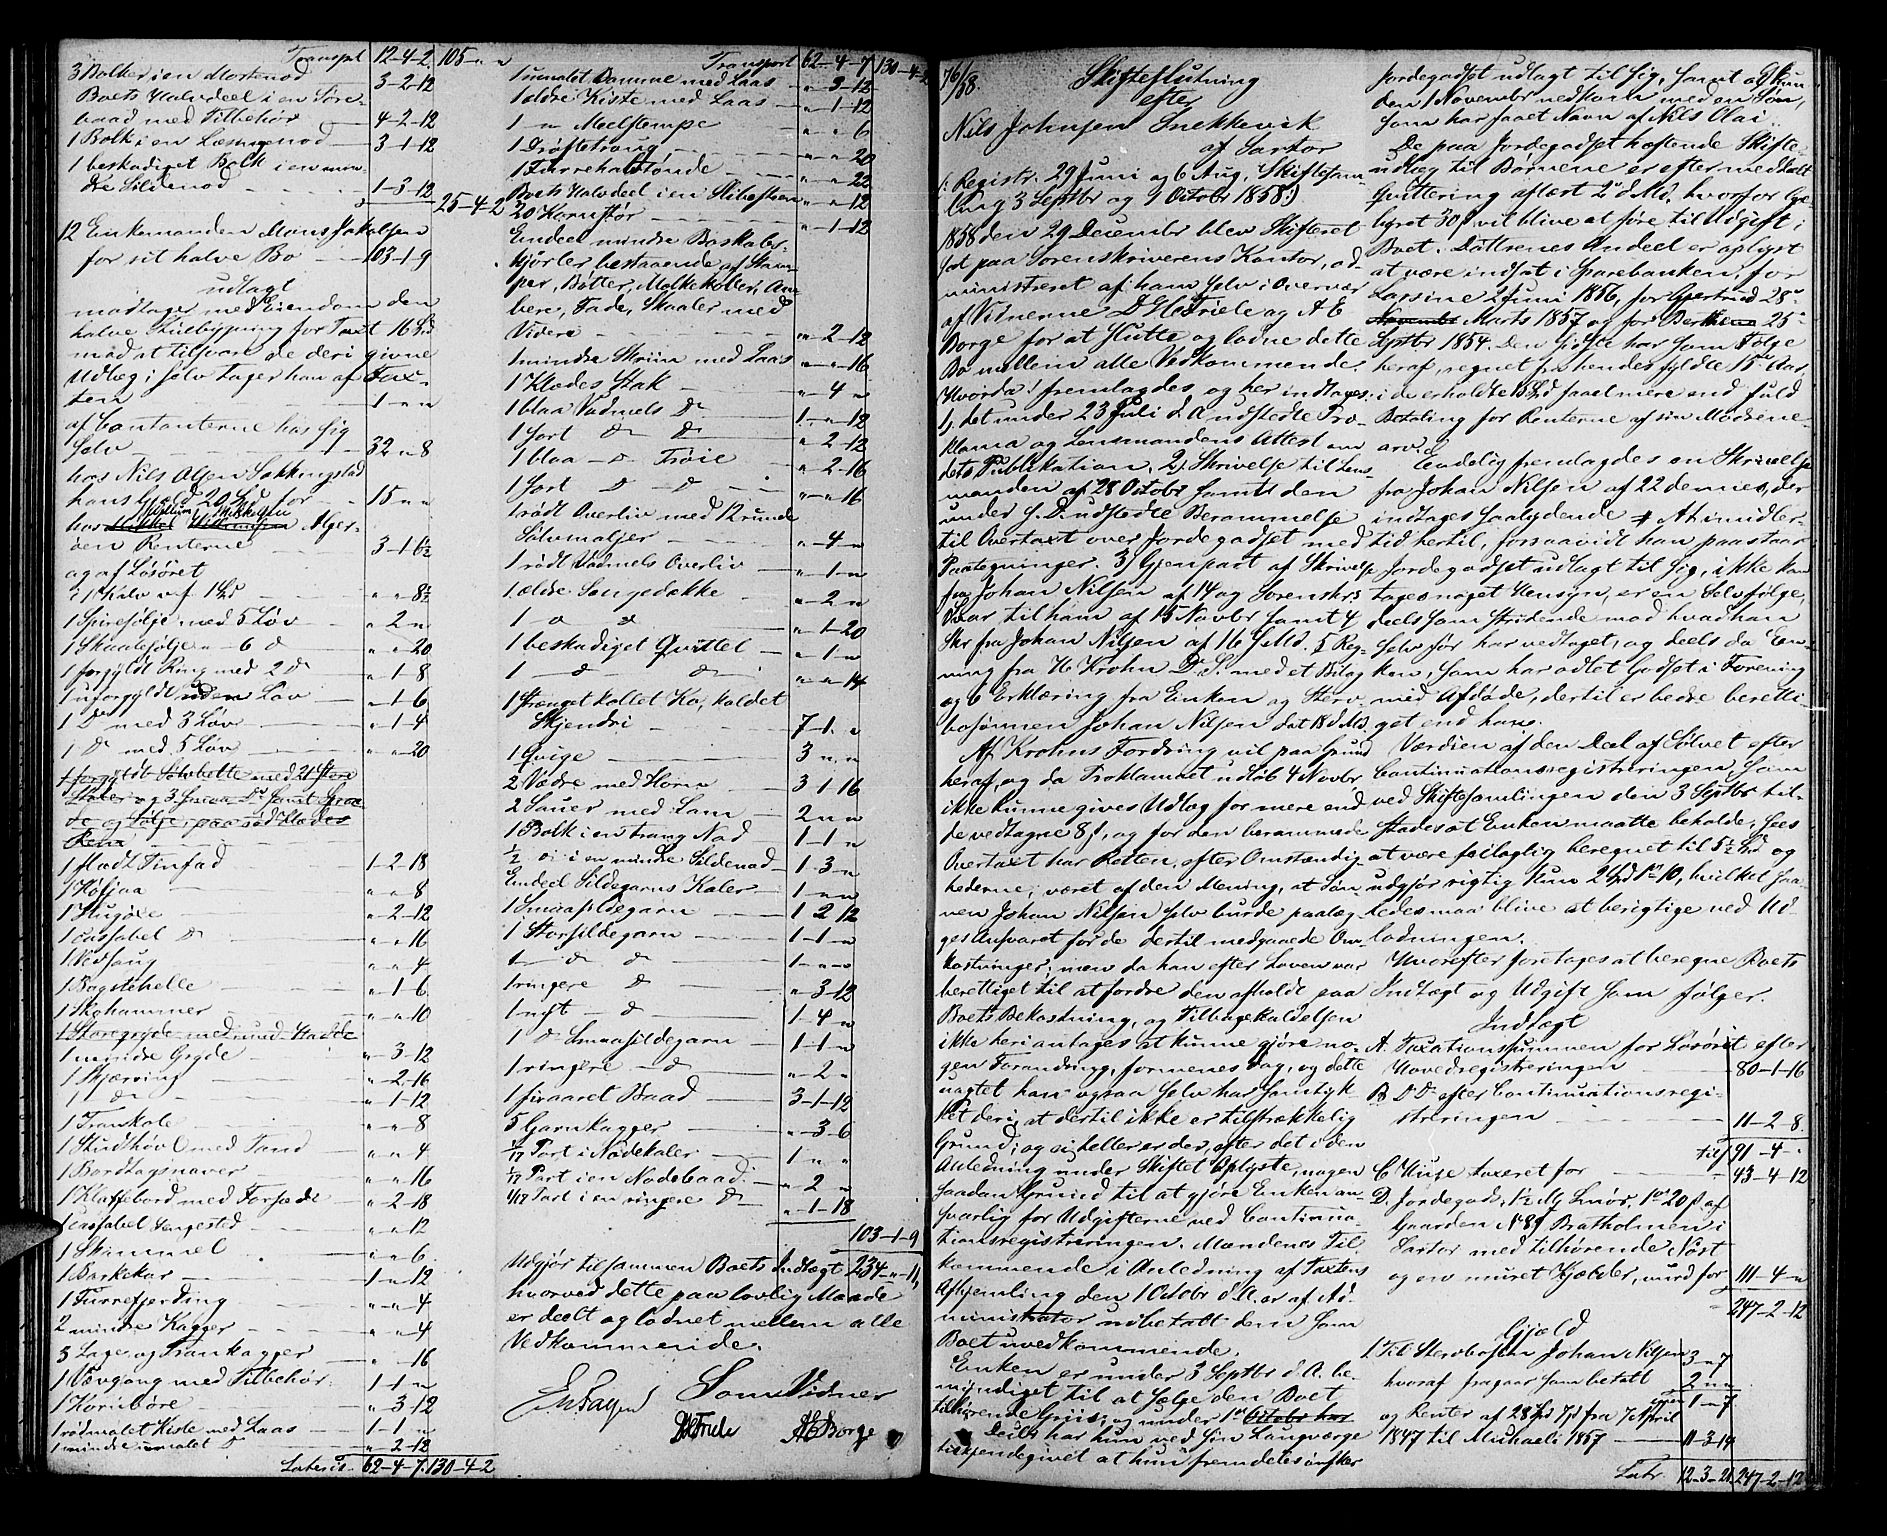 Transpt 12-4-2. 105-"-"
3 Bolker i en Mortenod 3-2-12
Boets Halvdeel i en Søre-
baad med Tilbehør 4-2-12
1 Bolk i en Læsningenod 3-1-12
1 beskadiget Bolk i en min-
dre Sildenod 1-3-12
25-4-2
12 Enkemanden Mons Jakobsen
for sit halve Bo 103-1-9
udlagt
modtager med Eiendom den
halve Huusbygning for Taxt 16
mod at tilsvare de deri givne
Udlæg; selv tager han af Tax-
ten 1-"-"
af Contanterne hos sig
selv 32-"-8
hos Nils Olsen Søkkingstad
hans Gjæld 20 Spd for 15-"-"
hos Alger-
øen Renterne 3-1-6½
og af Løsøret
1 Kalv "-"-8½
1 Spiresølje med 5 Løv "-2-"
1 Skaalesølje "-6 do "-"-20
1 forgyldt Ring med 2 do "-1-8
1 uforgyldt uden Løv "-1-6
1 Do med 3 Løv "-1-4
1 do med 5 Løv "-"-20
1 forgyldt Sølvbelte med 21 Støre
Stoler og 3 smaa Do samt Spæn-
de og Sølje paa rød Klædes
Rem
1 fladt Tinfad 1-2-18
1 Høljaa "-"-8
1 Hugøxe "-2-12
1 cassabel do "-"-16
1 Vedsaug "-"-4
1 Bagstehelle "-1-6
1 Skohammer "-"-10
1 Støregryde med rund Hadde
1 mindre Gryde "-3-12
1 Skjærring "-2-16
1 do "-1-12
1 Trankole "-"-8
1 Studthøvl med Tand "-"-4
1 Bordtagsnaver "-"-16
1 Klaffebord med Forsæde "-2-18
1 cassabel Sengested "-"-12
1 Skammel "-"-6
1 Barkekar "-1-12
1 Turrefjerding "-"-4
2 mindre Kagger "-"-4
3 Lage og Trankagger "-"-16
1 Vævgang med Tilbehør 1-1-"
1 Kornbøre "-3-12
1 rødmalet Kiste med Laas 1-1-"
1 mindre umalet do "-2-12
Lateris 62-4-7. 130-4-2
Transport 62-4-7 130-4-2
1 umalet Komme med Laas "-3-12
1 ældre Kiste med Laas "-1-12
1 " Meelstempe "-"-6
1 Drøftetroug "-"-20
1 Turrehaltønde "-"-22
Boets Halvdeel i en Slibesteen "-"-12
20 Kornstør "-1-12
Endeel mindre Boskaber-
kjørler bestaaende af Stam-
per, Bøtter, Melkekoller, Am-
bere, Fade, Skaaler med
Videre "-2-12
1 mindre Skriin med Laas "-"-16
1 Klædes Stak "-4-"
1 blaa Vadmels do 1-"-12
1 sort do do "-2-12
1 blaa do Trøie "-2-16
1 sort do do "-"-16
1 rødt Overliv med Runde
Sølvmaljer "-4-"
1 rødt Vadmels Overliv "-1-"
1 ældre Sengedække "-2-"
1 do do "-1-20
1 beskadiget Quittel "-1-"
1 do do "-"-14
1 strænget kollet Ko, kaldet
Skjendri 7-1-"
1 Qvige 3-"-"
2 Vædre med Horn 3-1-16
2 Sauer med Lam 2-"-"
1 Bolk i en trang Nod 1-1-"
½ do i en mindre Sildenod 1-3-"
Endeel Sildegarns Kaler 1-"-"
1 Smaasildegarn 1 2 12
1 Storsildegarn 1-1-"
1 do do 1-"-"
1 ringere do "-3-12
1 nyt do 1-4-"
1 do Smaasildegarn 1-1-"
1 ringere do "-2-"
1 firaaret Baad 3-1-12
5 Garnkagger "-3-6
1/17 Part i Nodekaler 1-"-"
1/17 Part i en Nodebaad "-2-"
4/17 Part i en ringere do "-1-18
103-1-9
Udgjør tilsammen Boets Indtægt 234-"-11,
hvorved dette paa lovlig Maade
er deelt og lodnet mellem alle
Vedkommende.
Som Vidner
DHFriele AEBorge
76/58. Skifteslutning
efter
Nils Johnsen Snekkevik
af Sartor
(: Registr. 29 Juni og 6 Aug. Skiftesam-
ling 3 Septbr og 9 Octobr 1858:)
1858 den 29 Decembr blev Skifteret
sat paa Sorenskriverens Kontor, ad-
ministreret af ham selv i Overvær
af Vidnerne D. H. Friele og A E
Borge for at slutte og lodne dette
Bo mellem alle Vedkommende.
Hvorda! fremlagdes og her indtages:
1, det under 23 Juli d. A. udstedte Pro-
klama og Lensmandens Attest om
dets Publikation. 2) Skrivelse til Lens-
manden af 28 Octobr samt den
under s. D. udstedte Berammelse
til Overtaxt over Jordegodset med
Paategninger. 3) Gjenpart af Skrivelse
fra Johan Nilsen af 14 og Sorenskrs
Svar til ham af 15 Novbr samt 4
Skr fra Johan Nilsen af 16 s. Md. 5 Reg-
ning fra H. Krohn D. S. med et Bilag
og 6 Erklæring fra Enken og Sterv-
bosønnen Johan Nilsen dat 18 d. Md.
Af Krohns Fordring vil paa Grund
heraf, og da Proklamaet udløb 4 Novbr
ikke kunne gives Udlæg for mere end
de vedtagne 8 s, og for den berammede
Overtaxt har Retten, efter Omstændig-
hederne, været af den Mening, at Søn-
nen Johan Nilsen selv burde paalæg-
ges Ansvaret for de dertil medgaaede Om-
kostninger; men da han efter Loven var
berettiget til at fordre den afholdt paa
Boets Bekostning, og Tilbagekaldelsen
ikke heri antages at kunne gjøre no-
gen Forandring, formenes dog, og dette
uagtet han ogsaa selv har samtyk-
ket deri, at dertil ikke er tilstrækkelig
Grund; og ei heller er der, efter det i den
Anledning under Skiftet Oplyste, nogen
saadan Grund til at gjøre Enken an-
svarlig for Udgifterne ved Continua-
tionsregistreringen. Mændenes Til-
kommende i Anledning af Taxtens
Afhjemling den 1 Octobr d. A. er af Ad-
ministrator udbetalt dem som
Boet uvedkommende.
Enken er under 3 Septbr d. A. be-
myndiget til at sælge den Boet
tilhørende Griis; og under 1ste Octobr har
Deils har hun ved sin Laugværge
tilkjendegivet at hun fremdeles ønsker
Jordegodset udlagt til sig, samt at hun
den 1 Novembr nedkom med en Søn,
som har faaet Navn af Nils Olai.
De paa Jordegodset hæftende Skifte-
udlæg til Børnene er efter meddeelt
Quittering aflæst 2 d. Md. hvorfor Ge-
byret 30 s vil blive at føre til Udgift i
Boet. Døttrenes Andeel er oplyst
at være indsat i Sparebanken, for
Larsine 2 Juni 1856, for Gjertrud 28de
Novembr Marts 1857 og for Berthe 25de
Septbr 1854. Den sidste har som Følge
heraf, regnet fra hendes fyldte 15de Aar,
i de erholdte 15 Spd faaet mere end fuld
Betaling for Renterne af sin Mødrene-
arv.
Endelig fremlagdes en Skrivelse
fra Johan Nilsen af 22 dennes, der
indtages saalydende # At imidler-
tid hertil, forsaavidt han paastaar
Jordegodset udlagt til sig, ikke kan
tages noget Hensyn, er en Selvfølge,
deels som stridende mod hvad han
selv før har vedtaget, og deels da En-
ken, som har avlet Godset i Forening
med Afdøde, dertil er bedre beretti-
get end han.
Værdien af den Deel af Sølvet efter
Continuationsregistreringen som
ved Skiftesamlingen den 3 Septbr til-
stodes at Enken maatte beholde, sees
at være feilagtig beregnet til 5½ Spd og
udgjør rigtig kun 2 Spd 1 ort 10, hvilket saa-
ledes maa blive at berigtige ved Ud-
lodningen.
Hvorefter foretages at beregne Boets
Indtægt og Udgift som følger.
Indtægt
A. Taxationssummen for Løsøret efter
Hovedregistreringen 80-1-16
B. Do Do efter Continuationsregi-
streringen 11-2-8.
tils 91-4-"
C. Huse taxeret for 43-4-12
D. Jordegods, Smør, 1 ort 20 s af
Gaarden No 89 Bratholmen i
Sartor med tilhørende Nøst
og en muret Kjælder, vurd for 111-4-"
247-2-12
Gjæld
1. Til Stervbosøn Johan Nilsen 3-"-7
hvoraf fragaar som betalt 2-"-"
igjen 1-"-7
og Renter af 28 Spd fra 7 April
1847 til Michaeli 1857 11-3-14
Latr. 12-3-21. 247-2-12